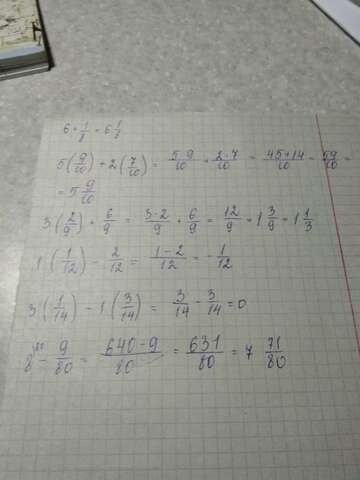 6 + 1/8 = 6 1/8
5(9/10) + 2(7/10) = 5·9/10 + 2·7/10 = 45+14/10 = 59/10 =
= 5 9/10
3(2/9) + 6/9 = 3·2/9 + 6/9 = 12/9 = 1 3/9 = 1 1/3
1(1/12) - 2/12 = 1-2/12 = -1/12
3(1/14) - 1(3/14) = 3/14 - 3/14 = 0
8 - 9/80 = 640-9/80 = 631/80 = 7 71/80